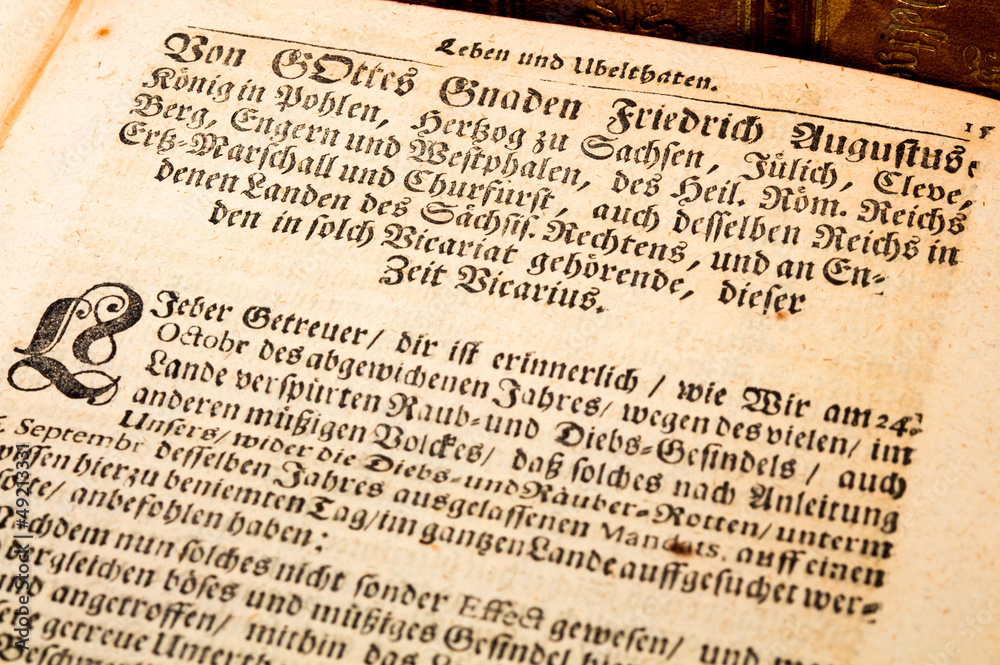 Leben und Ubelthaten.
Von GOttes Gnaden Friedrich Augustus,
König in Pohlen, Hertzog zu Sachsen, Jülich, Cleve,
Berg, Engern und Westphalen, des Heil. Röm. Reichs
Ertz-Marschall und Churfürst, auch desselben Reichs in
denen Landen des Sächsis. Rechtens, und an En-
den in solch Vicariat gehörende, dieser
Zeit Vicarius.
LJeber Getreuer/ dir ist erinnerlich / wie Wir am 24.
Octobr des abgewichenen Jahres/ wegen des vielen/ im
Lande verspürten Raub-und Diebs-Gesindels / auch
anderen müßigen Volckes/ daß solches nach Anleitung
Unsers/ wider die Diebs-und Räuber-Rotten/ unterm
Septembr desselben Jahres ausgelassenen Mandats, auff einen
hierzu beniemten Tag/ im gantzen Lande auffgesuchet wer-
anbefohlen haben:
Nachdem nun solches nicht sonder Effect gewesen/ und
dergleichen böses und müßiges Gesindel
und angetroffen/ mithin das
getreue
Adobe Stock | #49213331